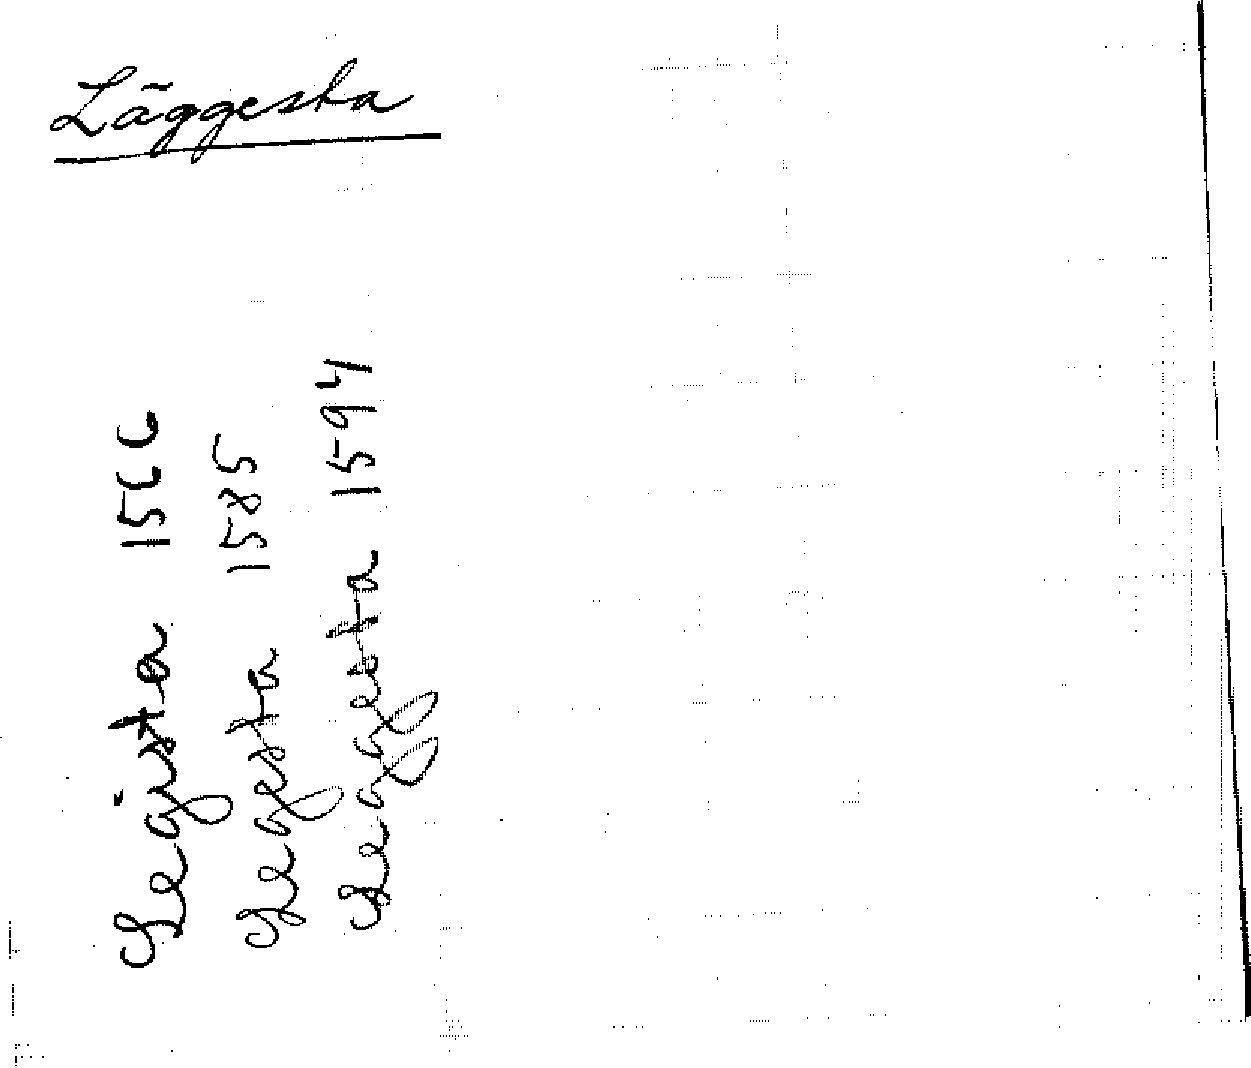 Läggesta
Legista 1566
Legesta 1585
Leggesta 1594